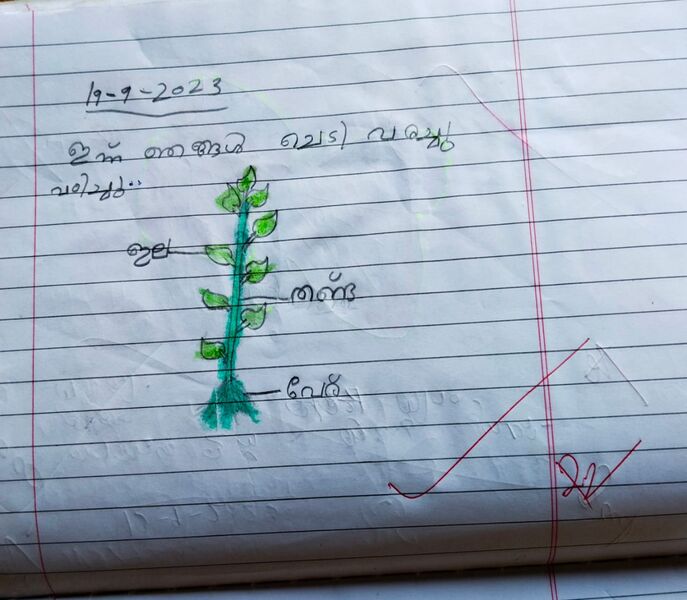 19-9-2023
ഇന്ന് ഞങ്ങൾ ചെടി വരച്ചു
പഠിച്ചു..
ഇല
തണ്ട
വേര്